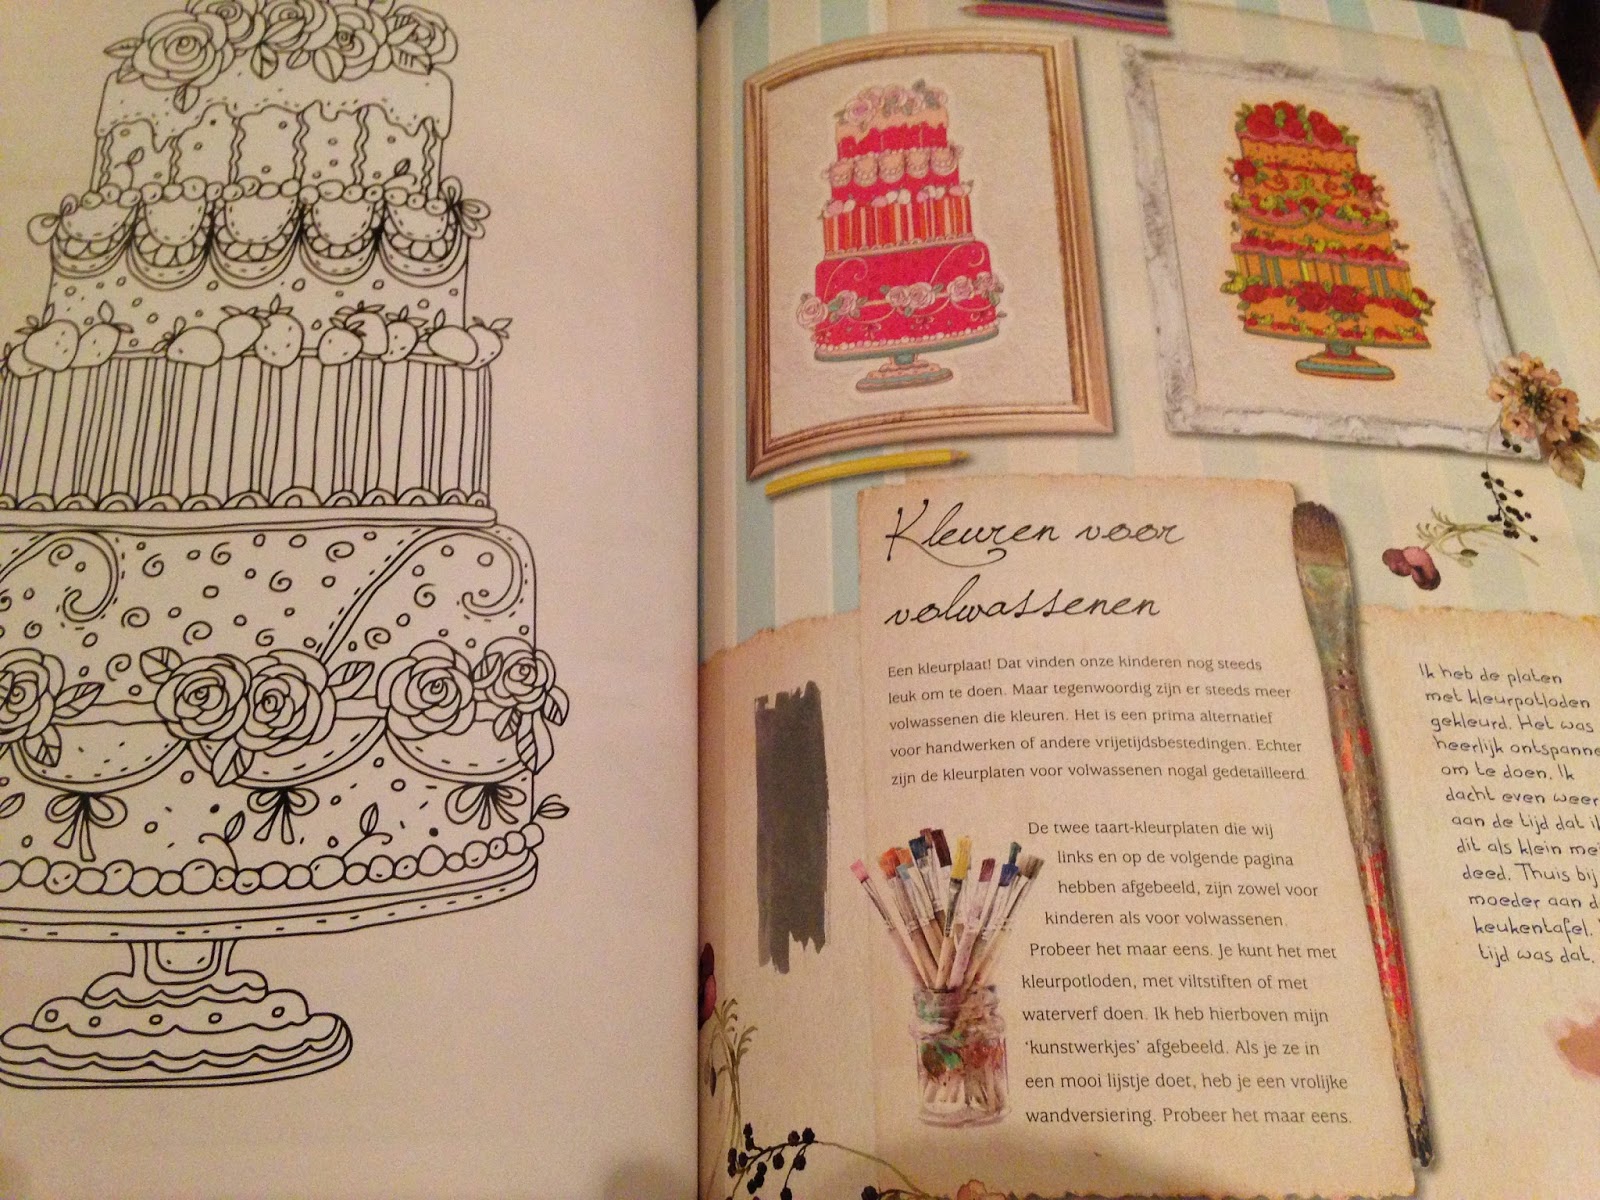 Kleuren voor
volwassenen
Een kleurplaat! Dat vinden onze kinderen nog steeds
leuk om te doen. Maar tegenwoordig zijn er steeds meer
volwassenen die kleuren. Het is een prima alternatief
voor handwerken of andere vrijetijdsbestedingen. Echter
zijn de kleurplaten voor volwassenen nogal gedetailleerd.
De twee taart-kleurplaten die wij
links en op de volgende pagina
hebben afgebeeld, zijn zowel voor
kinderen als voor volwassenen.
Probeer het maar eens. Je kunt het met
kleurpotloden, met viltstiften of met
waterverf doen. Ik heb hierboven mijn
'kunstwerkjes' afgebeeld. Als je ze in
een mooi lijstje doet, heb je een vrolijke
wandversiering. Probeer het maar eens.
Ik heb de platen
met kleurpotloden
gekleurd. Het was
heerlijk
om te doen. Ik
dacht even weer
aan de tijd dat
dit als klein
deed. Thuis bij
moeder aan
keukentafel.
tijd was dat.